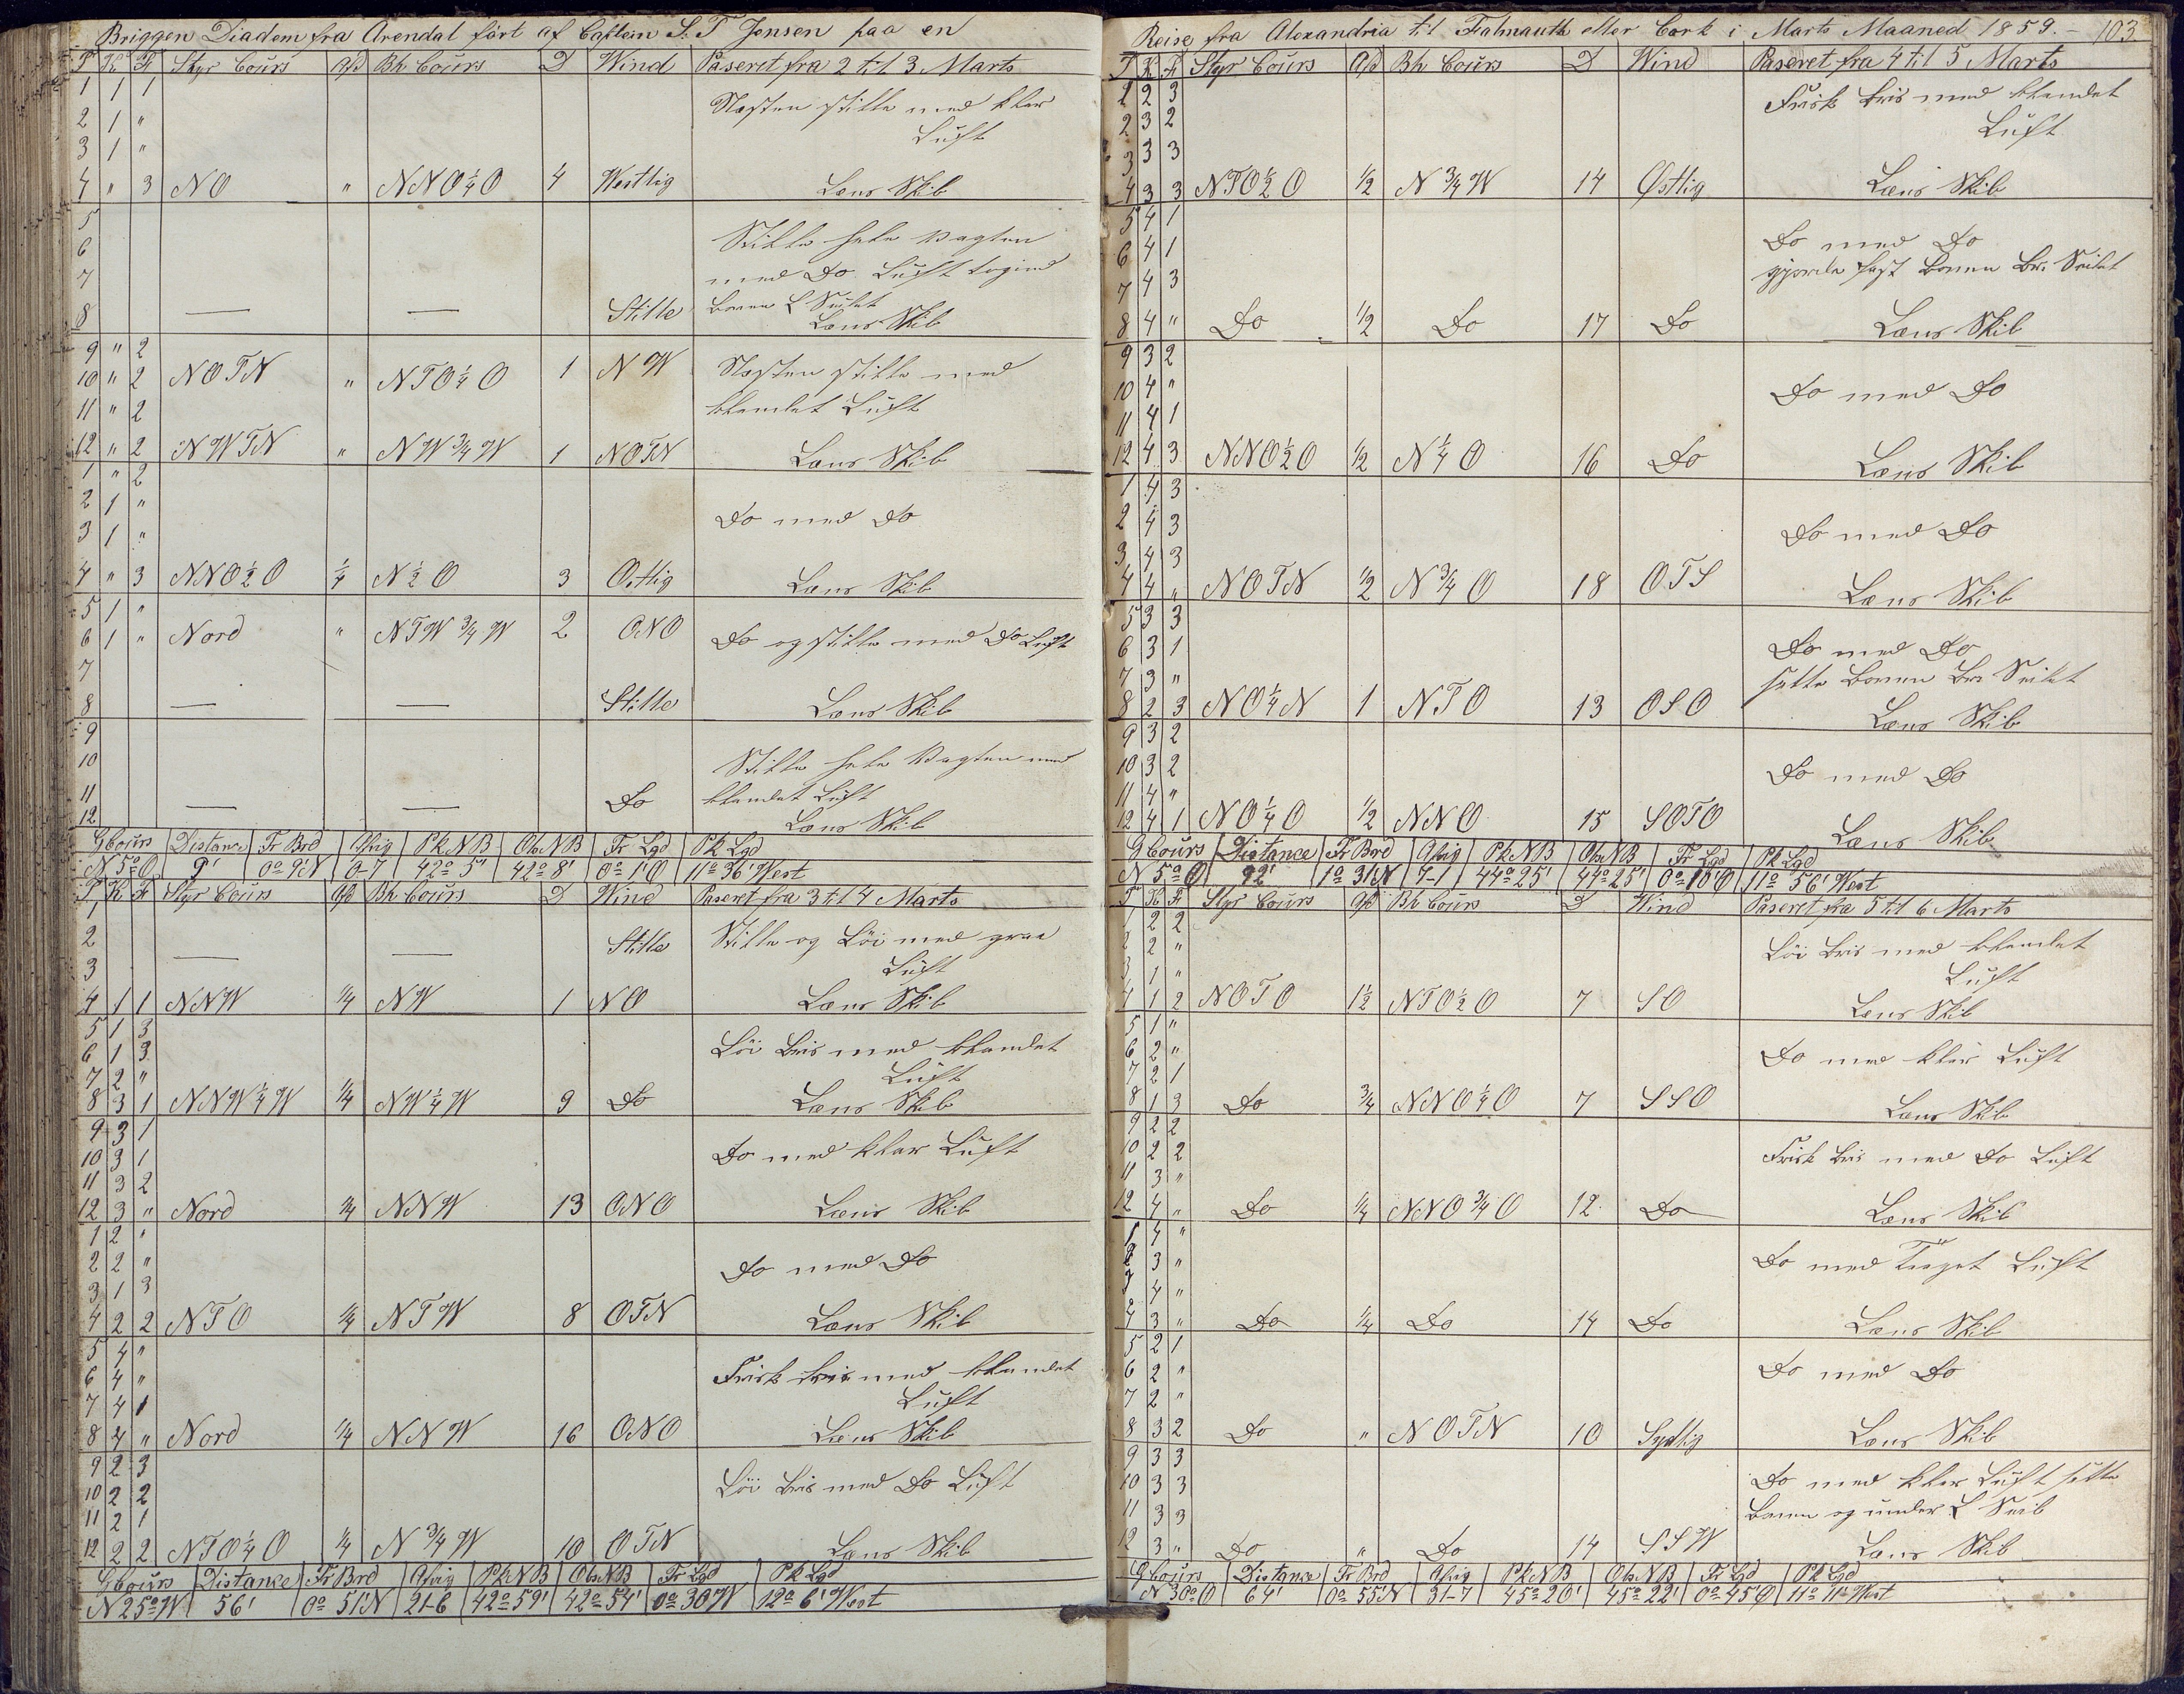 Briggen Diadem fra Arendal fört af Captein S. T Jensen paa en
T K F Styr Cours Afd Bh Cours D Wind Paseret fra 2 til 3 Marts
1 1 1 Næsten stille med klar
2 1 "
3 1 " Luft
4 " 3 NO " NNO¼O 4 Westlig Lens Skib
5 Stille hele Vagten
6
7 med Do Luft
8 — — Stille Lens Skib
9 " 2
10 " 2 NOTN " NTO¼O 1 NW Næsten stille med
11 " 2 blandet Luft
12 " 2 NWTN " NW¾W 1 NOTN Lens Skib
1 " 2
2 1 " Do med Do
3 1 "
4 " 3 NNO½O ¼ N½O 3 Ostlig Lens Skib
5 1 "
6 1 " Nord " NTW¾W 2 ONO Do og stille med Do Luft
7
8 — — Stille Lens Skib
9
10 Stille hele Vagten med
11 — — Do blandet Luft
12 Lens Skib
G Cours Distance Fr Brd Afvig Pk NB Obs NB Fr Lgd Pk Lgd
N 5° O 9' 0° 9' N 0-7 42° 5' 42° 8' 0° 1' O 11° 36' West
T K F Styr Cours Afd Bh Cours D Wind Paseret fra 3 til 4 Marts
1
2 — — Stille Stille og Löi med graa
3 Luft
4 1 1 NNW ¼ NW 1 NO Lens Skib
5 1 3
6 1 3 Löi bris med blandet
7 2 " Luft
8 3 1 NNW¼W ¼ NW¼W 9 Do Lens Skib
9 3 1
10 3 1 Do med klar Luft
11 3 2
12 3 " Nord ¼ NNW 13 ONO Lens Skib
1 2 "
2 2 " Do med Do
3 1 3
4 2 2 NTO ¼ NTW 8 OTN Lens Skib
5 4 "
6 4 " Frisk bris med blandet
7 4 1 Luft
8 4 " Nord ¼ NNW 16 ONO Lens Skib
9 2 3
10 2 2 Löi bris med Do Luft
11 2 1
12 2 2 NTO¼O ¼ N¾W 10 OTN Lens Skib
G Cours Distance Fr Brd Afvig Pk NB Obs NB Fr Lgd Pk Lgd
N 25° W 56' 0° 51' N 21-6 42° 59' 42° 54' 0° 30' W 12° 6' West
Reise fra Alexandria til Falmauth eller Cork i Marts Maaned 1859. – 103
T K F Styr Cours Afd Bh Cours D Wind Paseret fra 4 til 5 Marts
1 2 3 Frisk bris med blandet
2 3 2 Luft
3 3 3
4 3 3 NTO½O ½ N¾W 14 Østlig Lens Skib
5 4 1
6 4 1 Do med Do
7 4 3 gjorde fast Bomen Br. Seilet
8 4 " Do ½ Do 17 Do Lens Skib
9 3 2
10 4 " Do med Do
11 4 1
12 4 3 NNO½O ½ N¼O 16 Do Lens Skib
1 4 3
2 4 3 Do med Do
3 4 3
4 4 " NOTN ½ N¾O 18 OTS Lens Skib
5 3 3
6 3 1 Do med Do
7 3 " sætte Bomen Br. Seilet
8 2 3 NO¼N 1 NTO 13 OSO Lens Skib
9 3 2
10 3 2 Do med Do
11 4 "
12 4 1 NO¼O ½ NNO 15 SOTO Lens Skib
G Cours Distance Fr Brd Afvig Pk NB Obs NB Fr Lgd Pk Lgd
N 5° O 92' 1° 31' N 7-1 44° 25' 44° 25' 0° 10' O 11° 56' West
T K F Styr Cours Afd Bh Cours D Wind Paseret fra 5 til 6 Marts
1 2 2
2 2 " Löi bris med blandet
3 1 " Luft
4 1 2 NOTO 1½ NTO½O 7 SO Lens Skib
5 1 "
6 2 " Do med klar Luft
7 2 1
8 1 3 Do ¾ NNO¼O 7 SSO Lens Skib
9 2 2
10 2 2 Frisk bris med Do Luft
11 3 "
12 4 " Do ¼ NNO¾O 12 Do Lens Skib
1 4 "
2 3 " Do med Luft
3 4 "
4 3 " Do ¼ Do 14 Do Lens Skib
5 2 1
6 2 " Do med Do
7 2 "
8 3 2 Do " NOTN 10 Sydlig Lens Skib
9 3 3
10 3 3 Do med klar Luft sætte
11 3 3 Bomen og under L Seil
12 3 " Do " Do 14 SSW Lens Skib
G Cours Distance Fr Brd Afvig Pk NB Obs NB Fr Lgd Pk Lgd
N 30° O 64' 0° 55' N 31-7 45° 20' 45° 22' 0° 45' O 11° 11' West